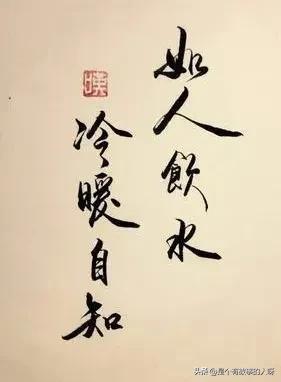 如人飲水
冷暖自知
头条@是个有故事的人呀